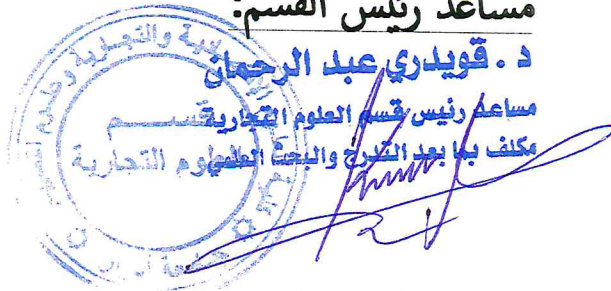 مساعد رئيس القسم:
د. قويدري عبد الرحمان
مساعد رئيس قسم العلوم التجارية
مكلف بما بعد التدرج والبحث العلمي
قســـــم
العلوم التجارية